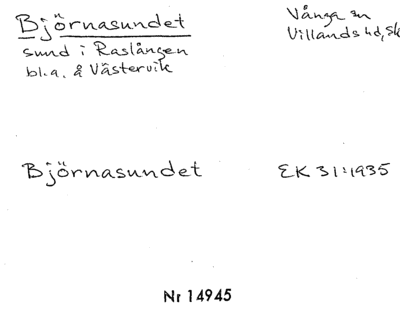 Björnasundet
sund i Raslången
bl.a. å Västervik
Vånga sn
Villands hd, Sk
Björnasundet
EK 31:1935
Nr 14945